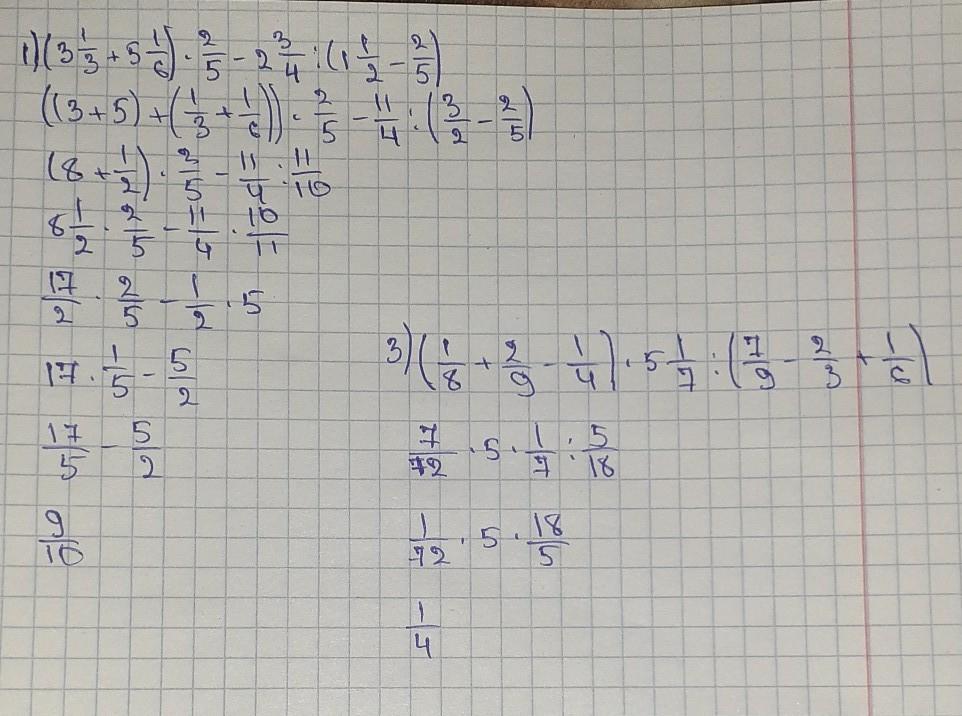 1) (3 1/3 + 5 1/6) · 2/5 - 2 3/4 : (1 1/2 - 2/5)
((3 + 5) + (1/3 + 1/6)) · 2/5 - 11/4 : (3/2 - 2/5)
(8 + 1/2) · 2/5 - 11/4 : 11/10
8 1/2 · 2/5 - 11/4 · 10/11
17/2 · 2/5 - 1/2 · 5
17 · 1/5 - 5/2
17/5 - 5/2
9/10
3) (1/8 + 2/9 - 1/4) · 5 1/7 : (7/9 - 2/3 + 1/6)
7/72 · 5 · 1/7 : 5/18
1/72 · 5 · 18/5
1/4